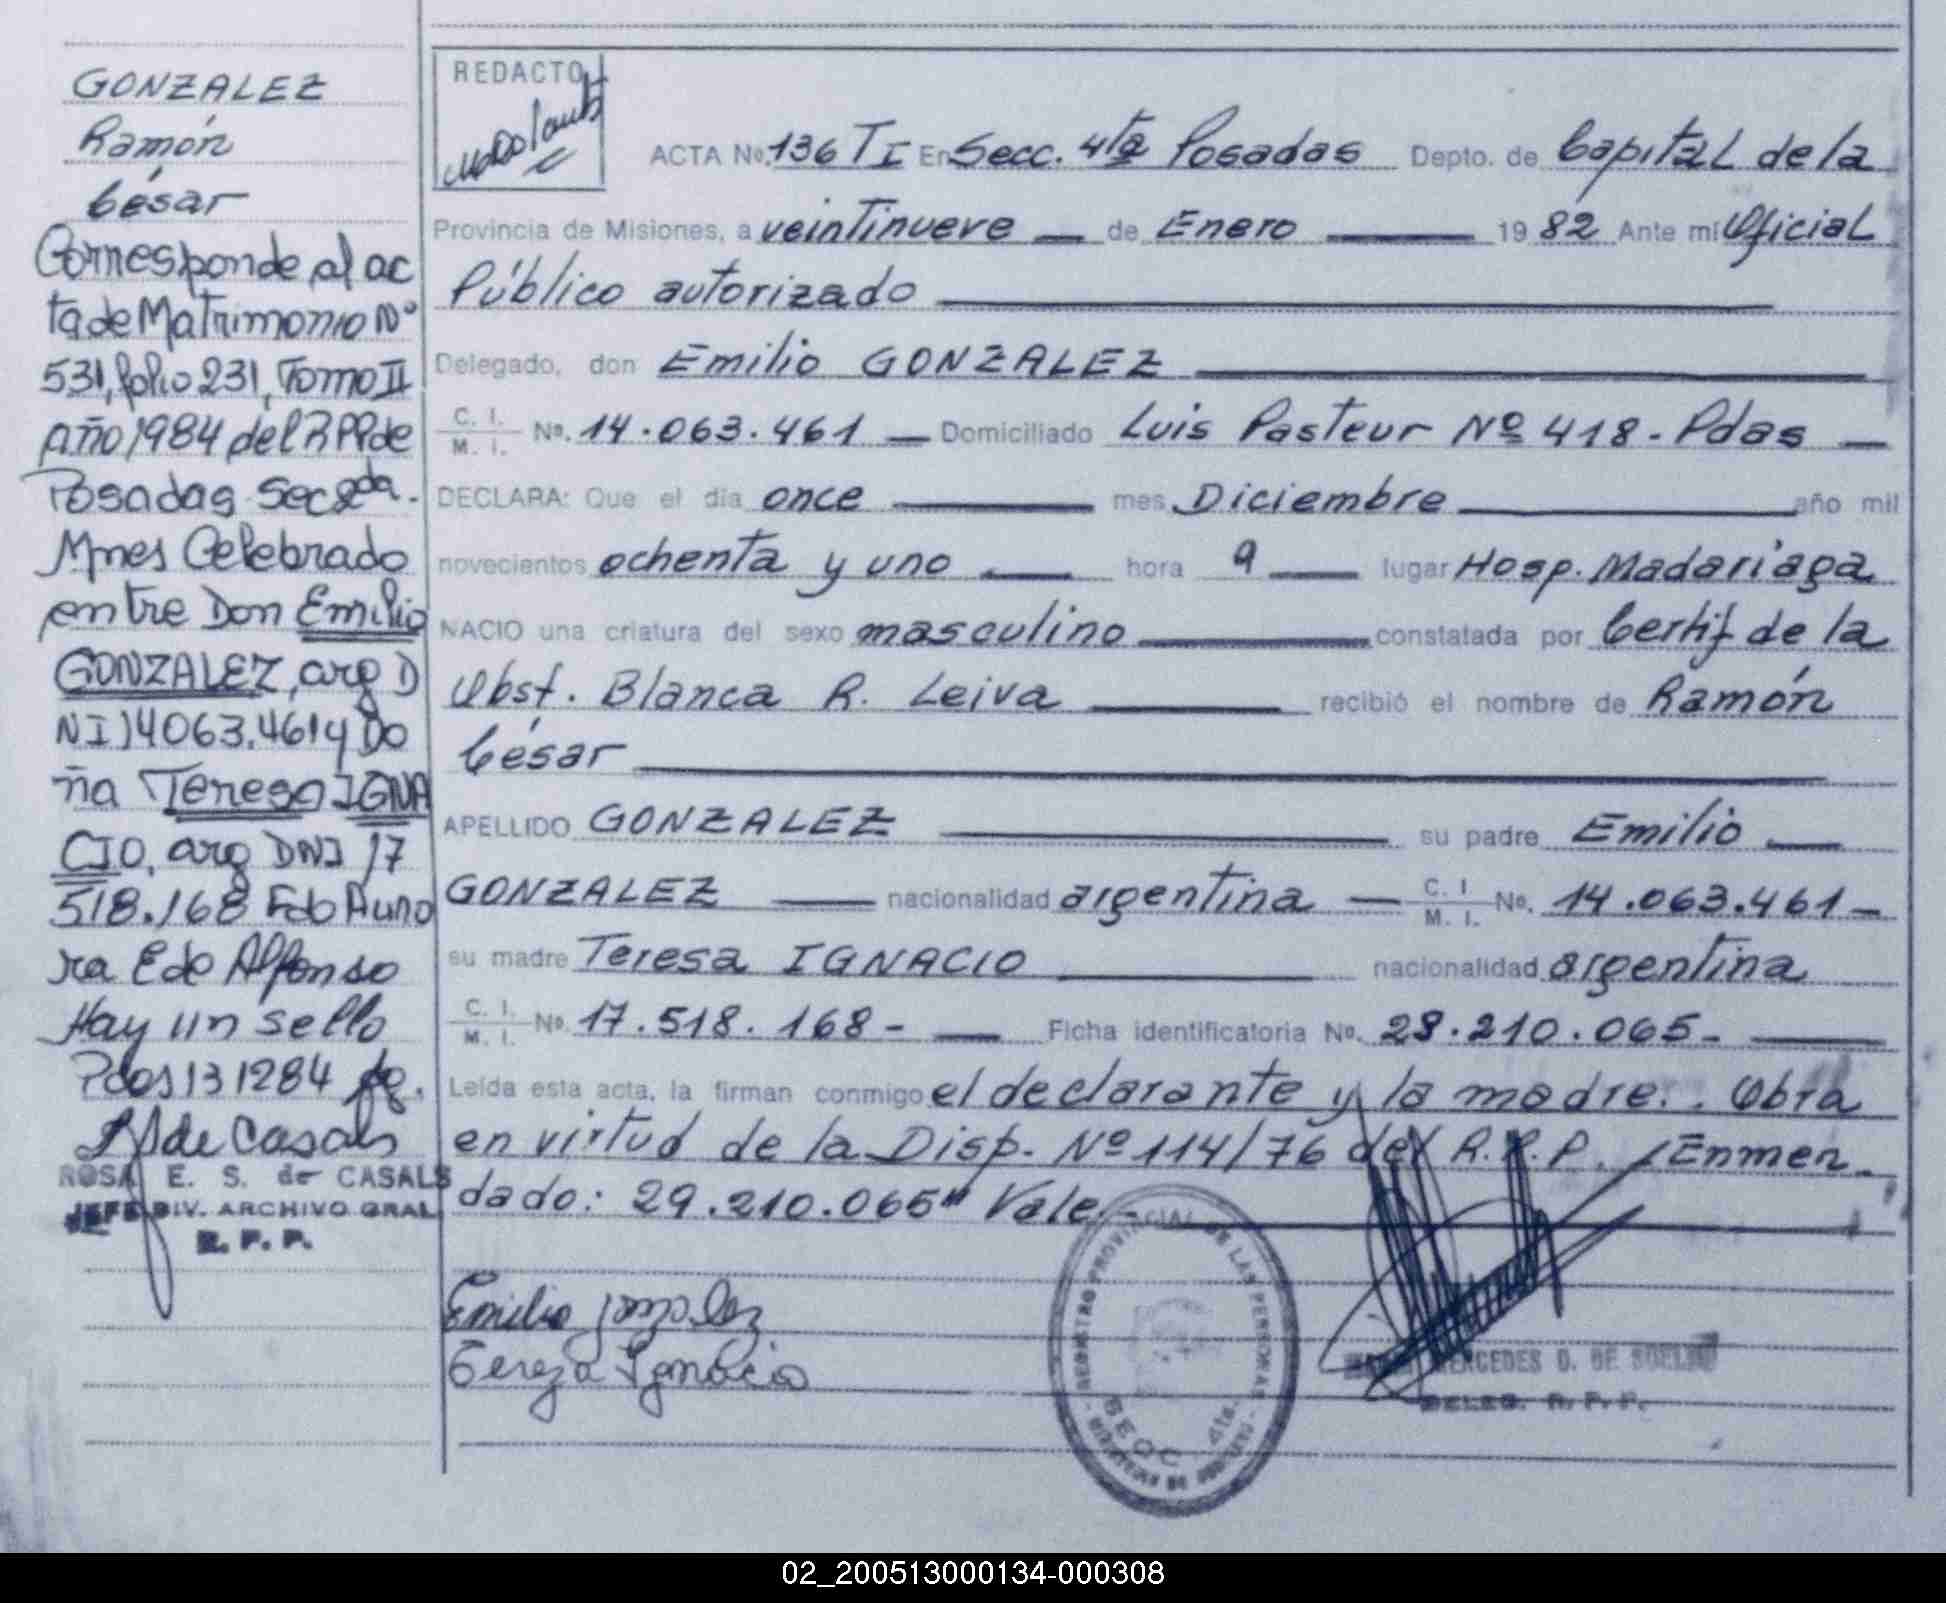 GONZALEZ
Ramón
César
Corresponde al ac
ta de Matrimonio Nº
531, folio 231, Tomo II
año 1984 del RPP de
Posadas Sec 2da.
Mnes Celebrado
entre Don Emilio
GONZALEZ, arg D
NI 14063.461 y Do
ña Teresa IGNA
CIO, arg DNI 17
518.168 Fdo Auro
ra E de Alfonso
Hay un sello
Pdas 13 12 84
de Casals
ROSA E. S. de CASALS
JEFE DIV. ARCHIVO GRAL
R. P. P.
REDACTO
ACTA No. 136 TI En Secc. 4ta Posadas Depto. de Capital de la
Provincia de Misiones, a veintinueve de Enero 19 82 Ante mí Oficial
Público autorizado
Delegado, don Emilio GONZALEZ
C. I. M. I. No. 14.063.461 Domiciliado Luis Pasteur Nº 418 - Pdas
DECLARA: Que el día once mes Diciembre año mil
novecientos ochenta y uno hora 9 lugar Hosp. Madariaga
NACIO una criatura del sexo masculino constatada por Certif de la
Obst. Blanca R. Leiva recibió el nombre de Ramón
César
APELLIDO GONZALEZ su padre Emilio
GONZALEZ nacionalidad argentina C. I. M. I. No. 14.063.461
su madre Teresa IGNACIO nacionalidad argentina
C. I. M. I. No. 17.518.168 - Ficha identificatoria No. 29.210.065 -
Leída esta acta, la firman conmigo el declarante y la madre. Obra
en virtud de la Disp. Nº 114/76 del R.P.P. / Enmen
dado: 29.210.065" Vale
Emilio Gonzalez
Tereza Ignacio
REGISTRO PROVINCIAL DE LAS PERSONAS
SECC 4ta.
MERCEDES D. DE
DELEG. R. P. P.
02_200513000134-000308